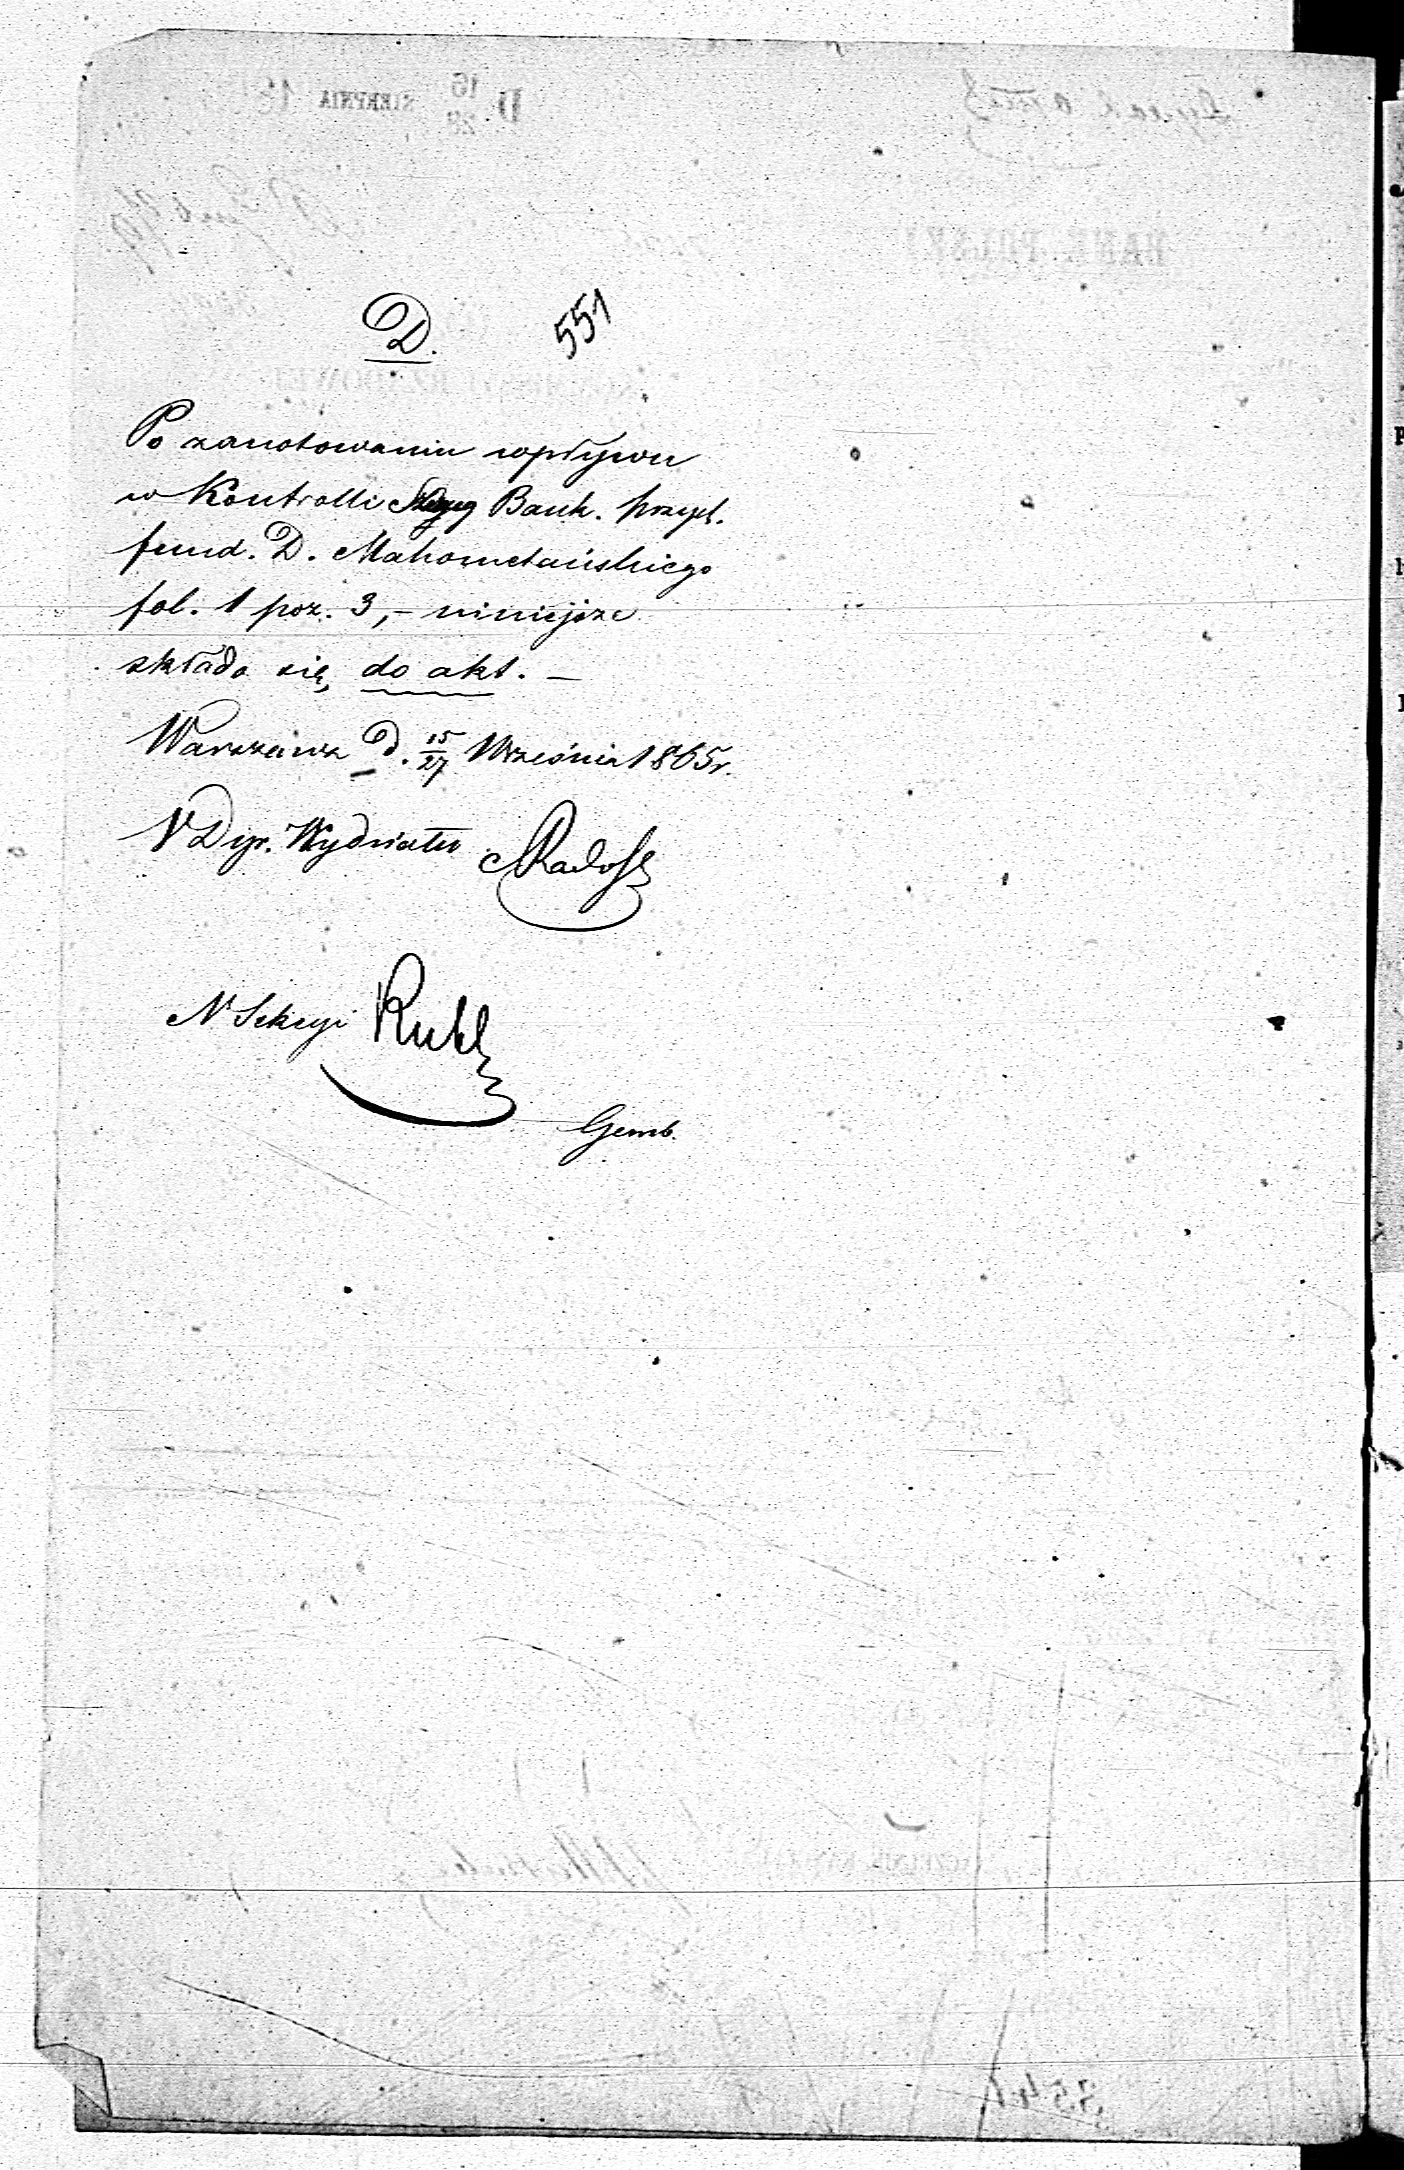 D.
551
Po zanotowaniu wpływu
w Kontrolli Bank. przych.
fund. D. Mahometańskiego
fol. 1 poz. 3, – niniejsze
składa się do akt. –
Warszawa D. 15/27 Września 1865 r.
N Dyr. Wydziału
N Sekcyi
Gemb.